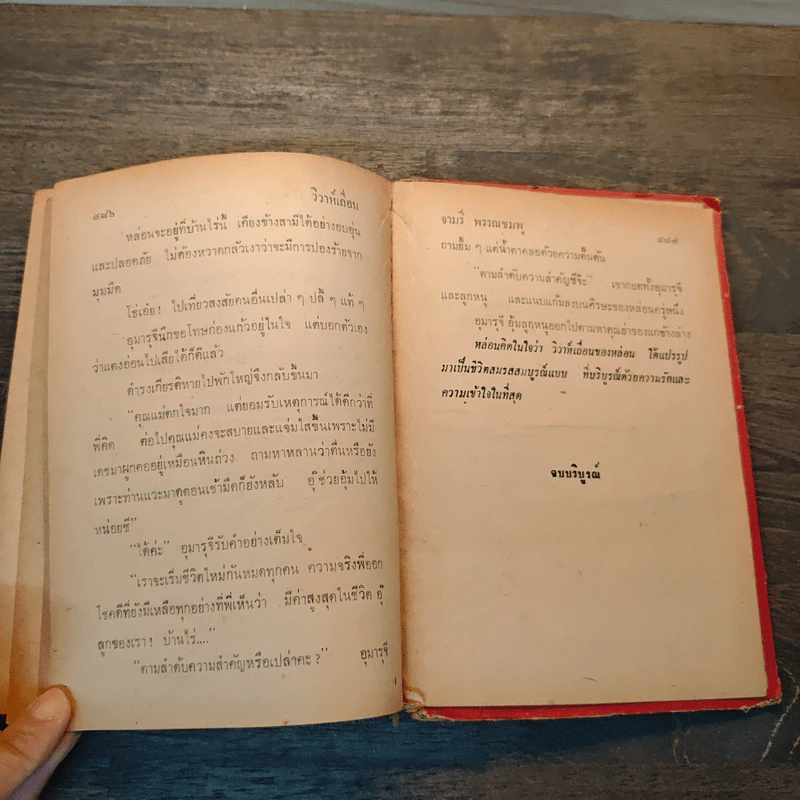 ๔๘๖
วิวาห์เถื่อน
หล่อนจะอยู่ที่บ้านไร่นี้ เคียงข้างสามีได้อย่างอบอุ่น
และปลอดภัย ไม่ต้องหวาดกลัวเงาว่าจะมีการปองร้ายจาก
มุมมืด
โธ่เอ๋ย! ไปเที่ยวสงสัยคนอื่นเปล่า ๆ ปลี้ ๆ แท้ ๆ
อุมารุจีนึกขอโทษก่องแก้วอยู่ในใจ แต่บอกตัวเอง
ว่าแตงอ่อนไปเสียได้ก็ดีแล้ว
ดำรงเกียรติหายไปพักใหญ่จึงกลับขึ้นมา
“คุณแม่ตกใจมาก แต่ยอมรับเหตุการณ์ได้ดีกว่าที่
พี่คิด ต่อไปคุณแม่คงจะสบายและแจ่มใสขึ้นเพราะไม่มี
เดชมาผูกคออยู่เหมือนหินถ่วง ถามหาหลานว่าตื่นหรือยัง
เพราะท่านแวะมาดูตอนเช้ามืดก็ยังหลับ อุ๊ช่วยอุ้มไปให้
หน่อยซี”
“ได้ค่ะ” อุมารุจีรับคำอย่างเต็มใจ
“เราจะเริ่มชีวิตใหม่กันหมดทุกคน ความจริงพี่ออก
โชคดีที่ยังมีเหลือทุกอย่างที่พี่เห็นว่า มีค่าสูงสุดในชีวิต อุ๊
ลูกของเรา! บ้านไร่....”
“ตามลำดับความสำคัญหรือเปล่าคะ?” อุมารุจี
จามรี พรรณชมพู
๔๘๗
ถามยิ้ม ๆ แต่น้ำตาคลอด้วยความตื้นตัน
“ตามลำดับความสำคัญซีจ๊ะ” เขากอดทั้งอุมารุจี
และลูกหนู และแนบแก้มลงบนศีรษะของหล่อนครู่หนึ่ง
อุมารุจี อุ้มลูกหนูออกไปตามหาคุณย่าของแกข้างล่าง
หล่อนคิดในใจว่า วิวาห์เถื่อนของหล่อน ได้แปรรูป
มาเป็นชีวิตสมรสสมบูรณ์แบบ ที่บริบูรณ์ด้วยความรักและ
ความเข้าใจในที่สุด
จบบริบูรณ์